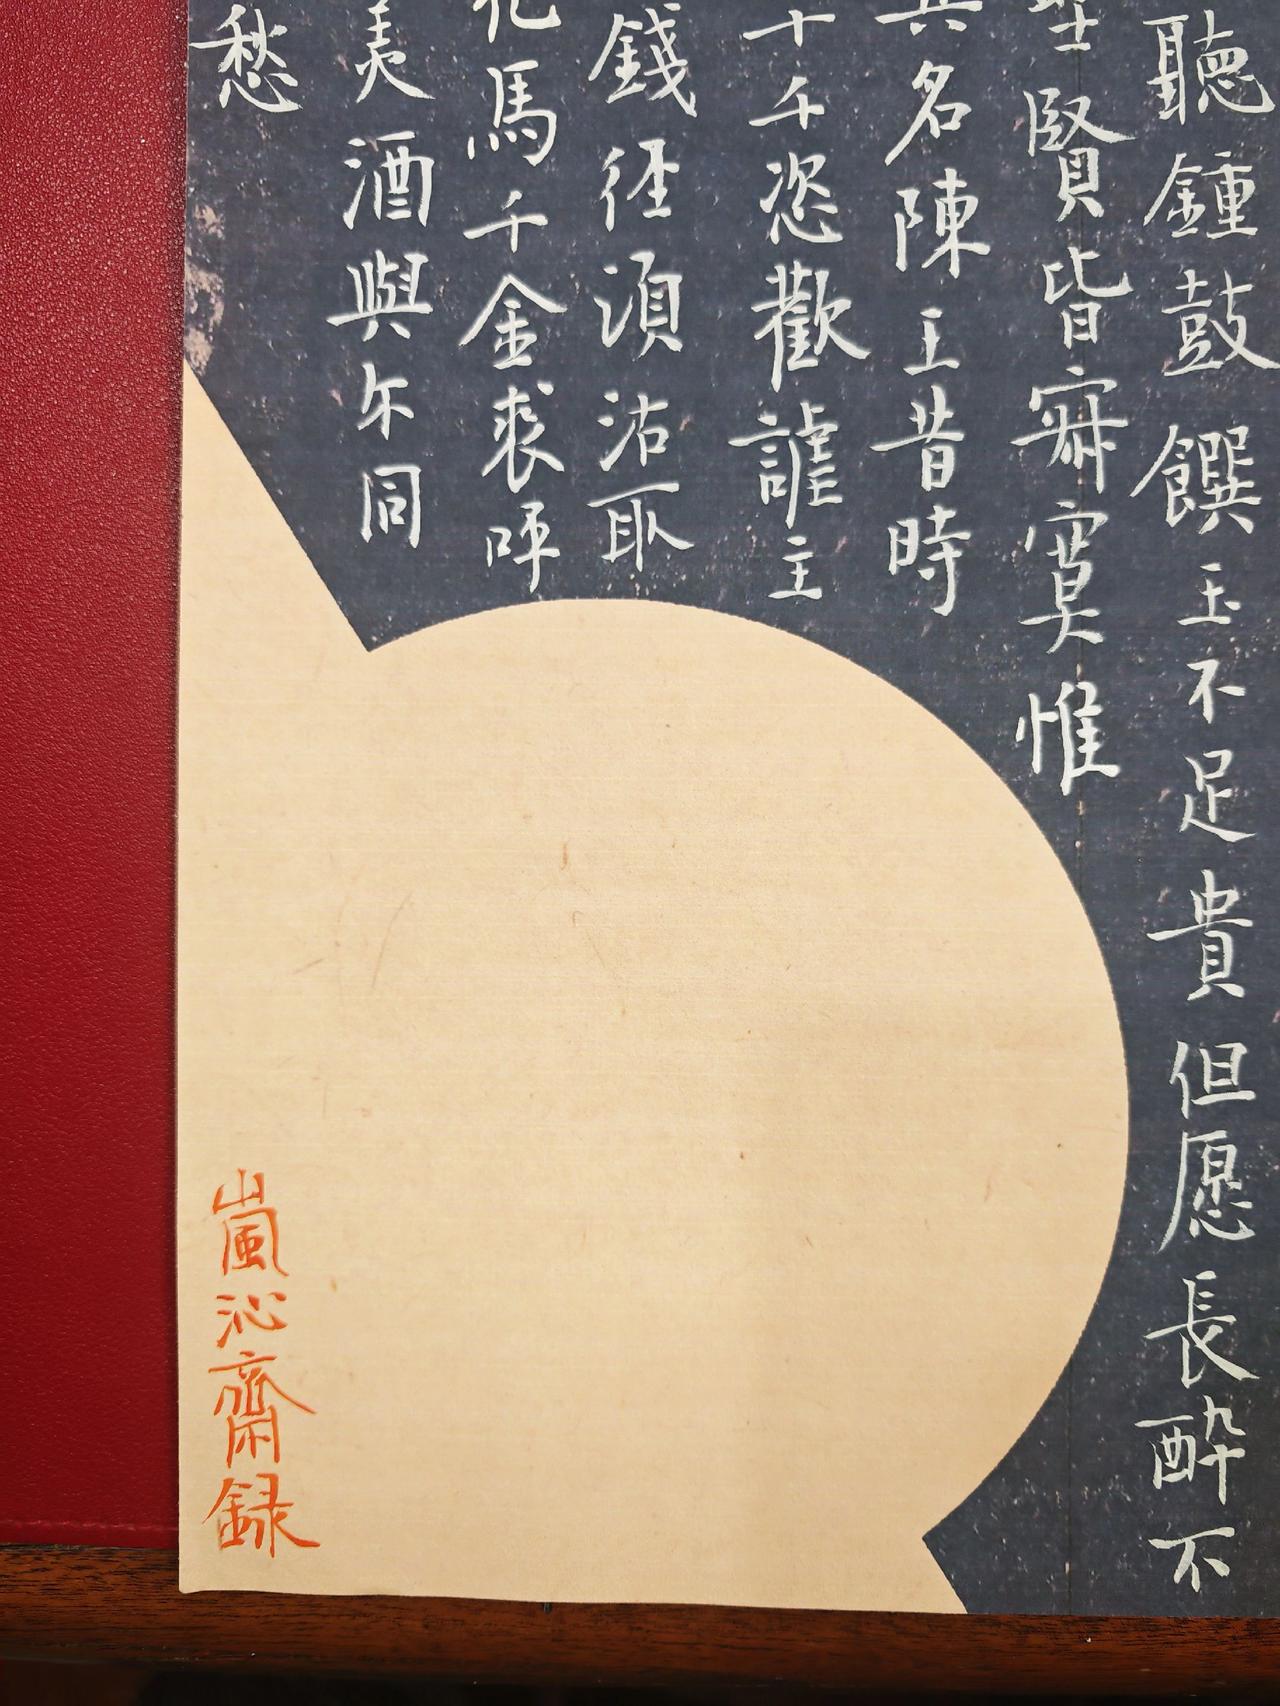 聽鍾鼓饌玉不足貴但愿長醉不
聖賢皆寂寞惟
其名陳王昔時
十千恣歡謔主
錢径須沽取
花馬千金裘呼
美酒與尔同
愁
嵐沁齋録